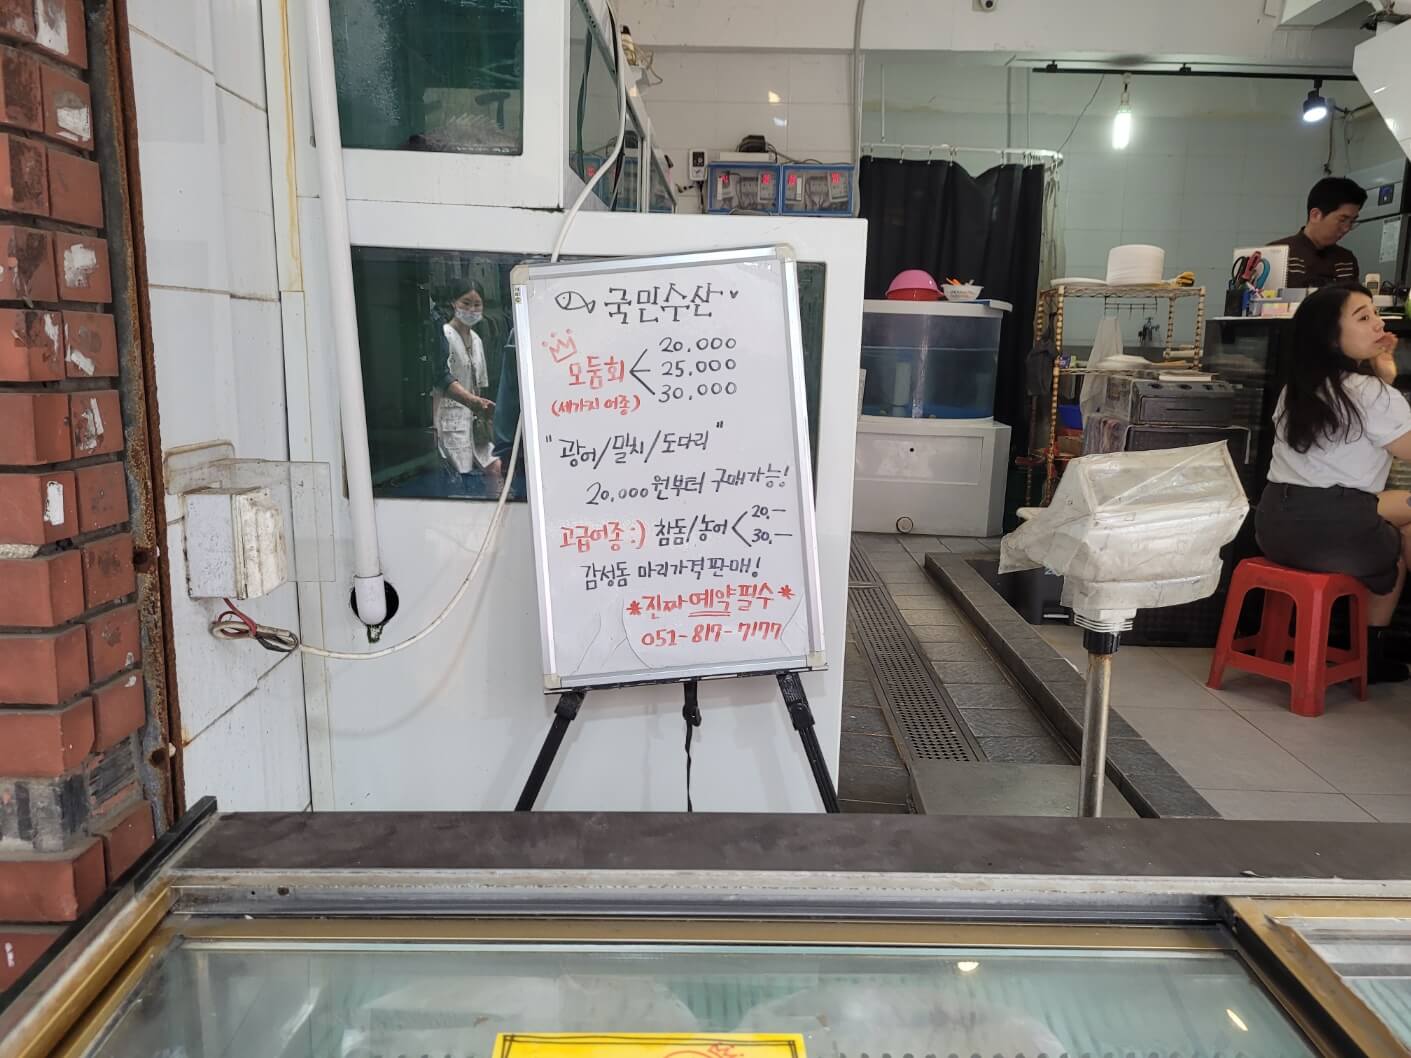 국민수산
모둠회 < 20,000
25,000
30,000
(세가지 어종)
"광어/밀치/도다리"
20,000원부터 구매가능!
고급어종 :) 참돔/농어 < 20,—
30,—
감성돔 마리가격판매!
*진짜 예약필수*
051-817-7177